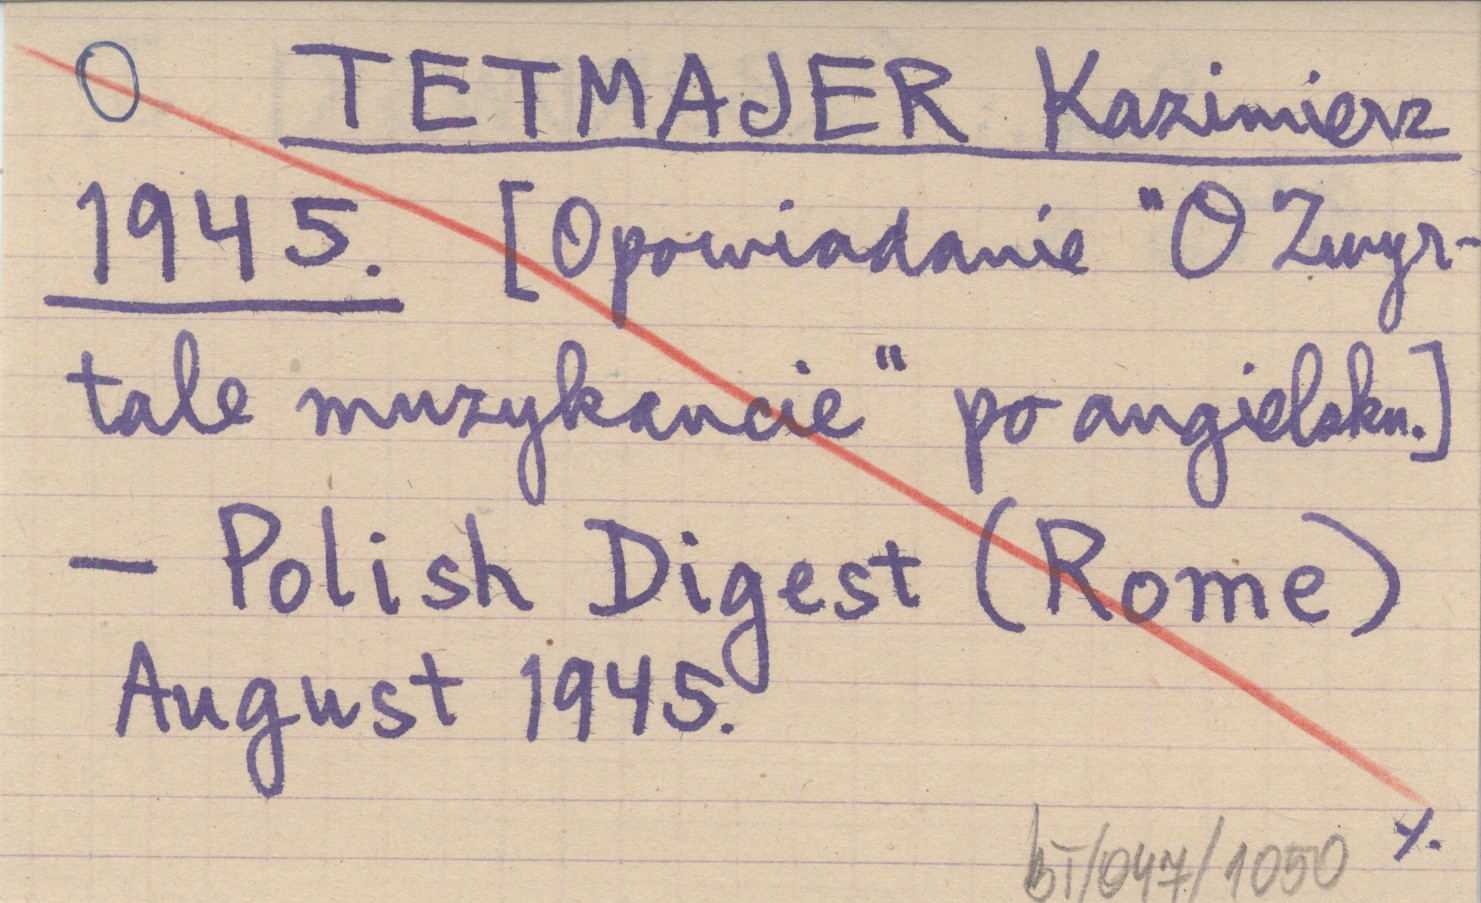 O TETMAJER Kazimierz
1945. [Opowiadanie "O Zwyr-
tale muzykancie" po angielsku.]
— Polish Digest (Rome)
August 1945.
%.
BT/047/1050